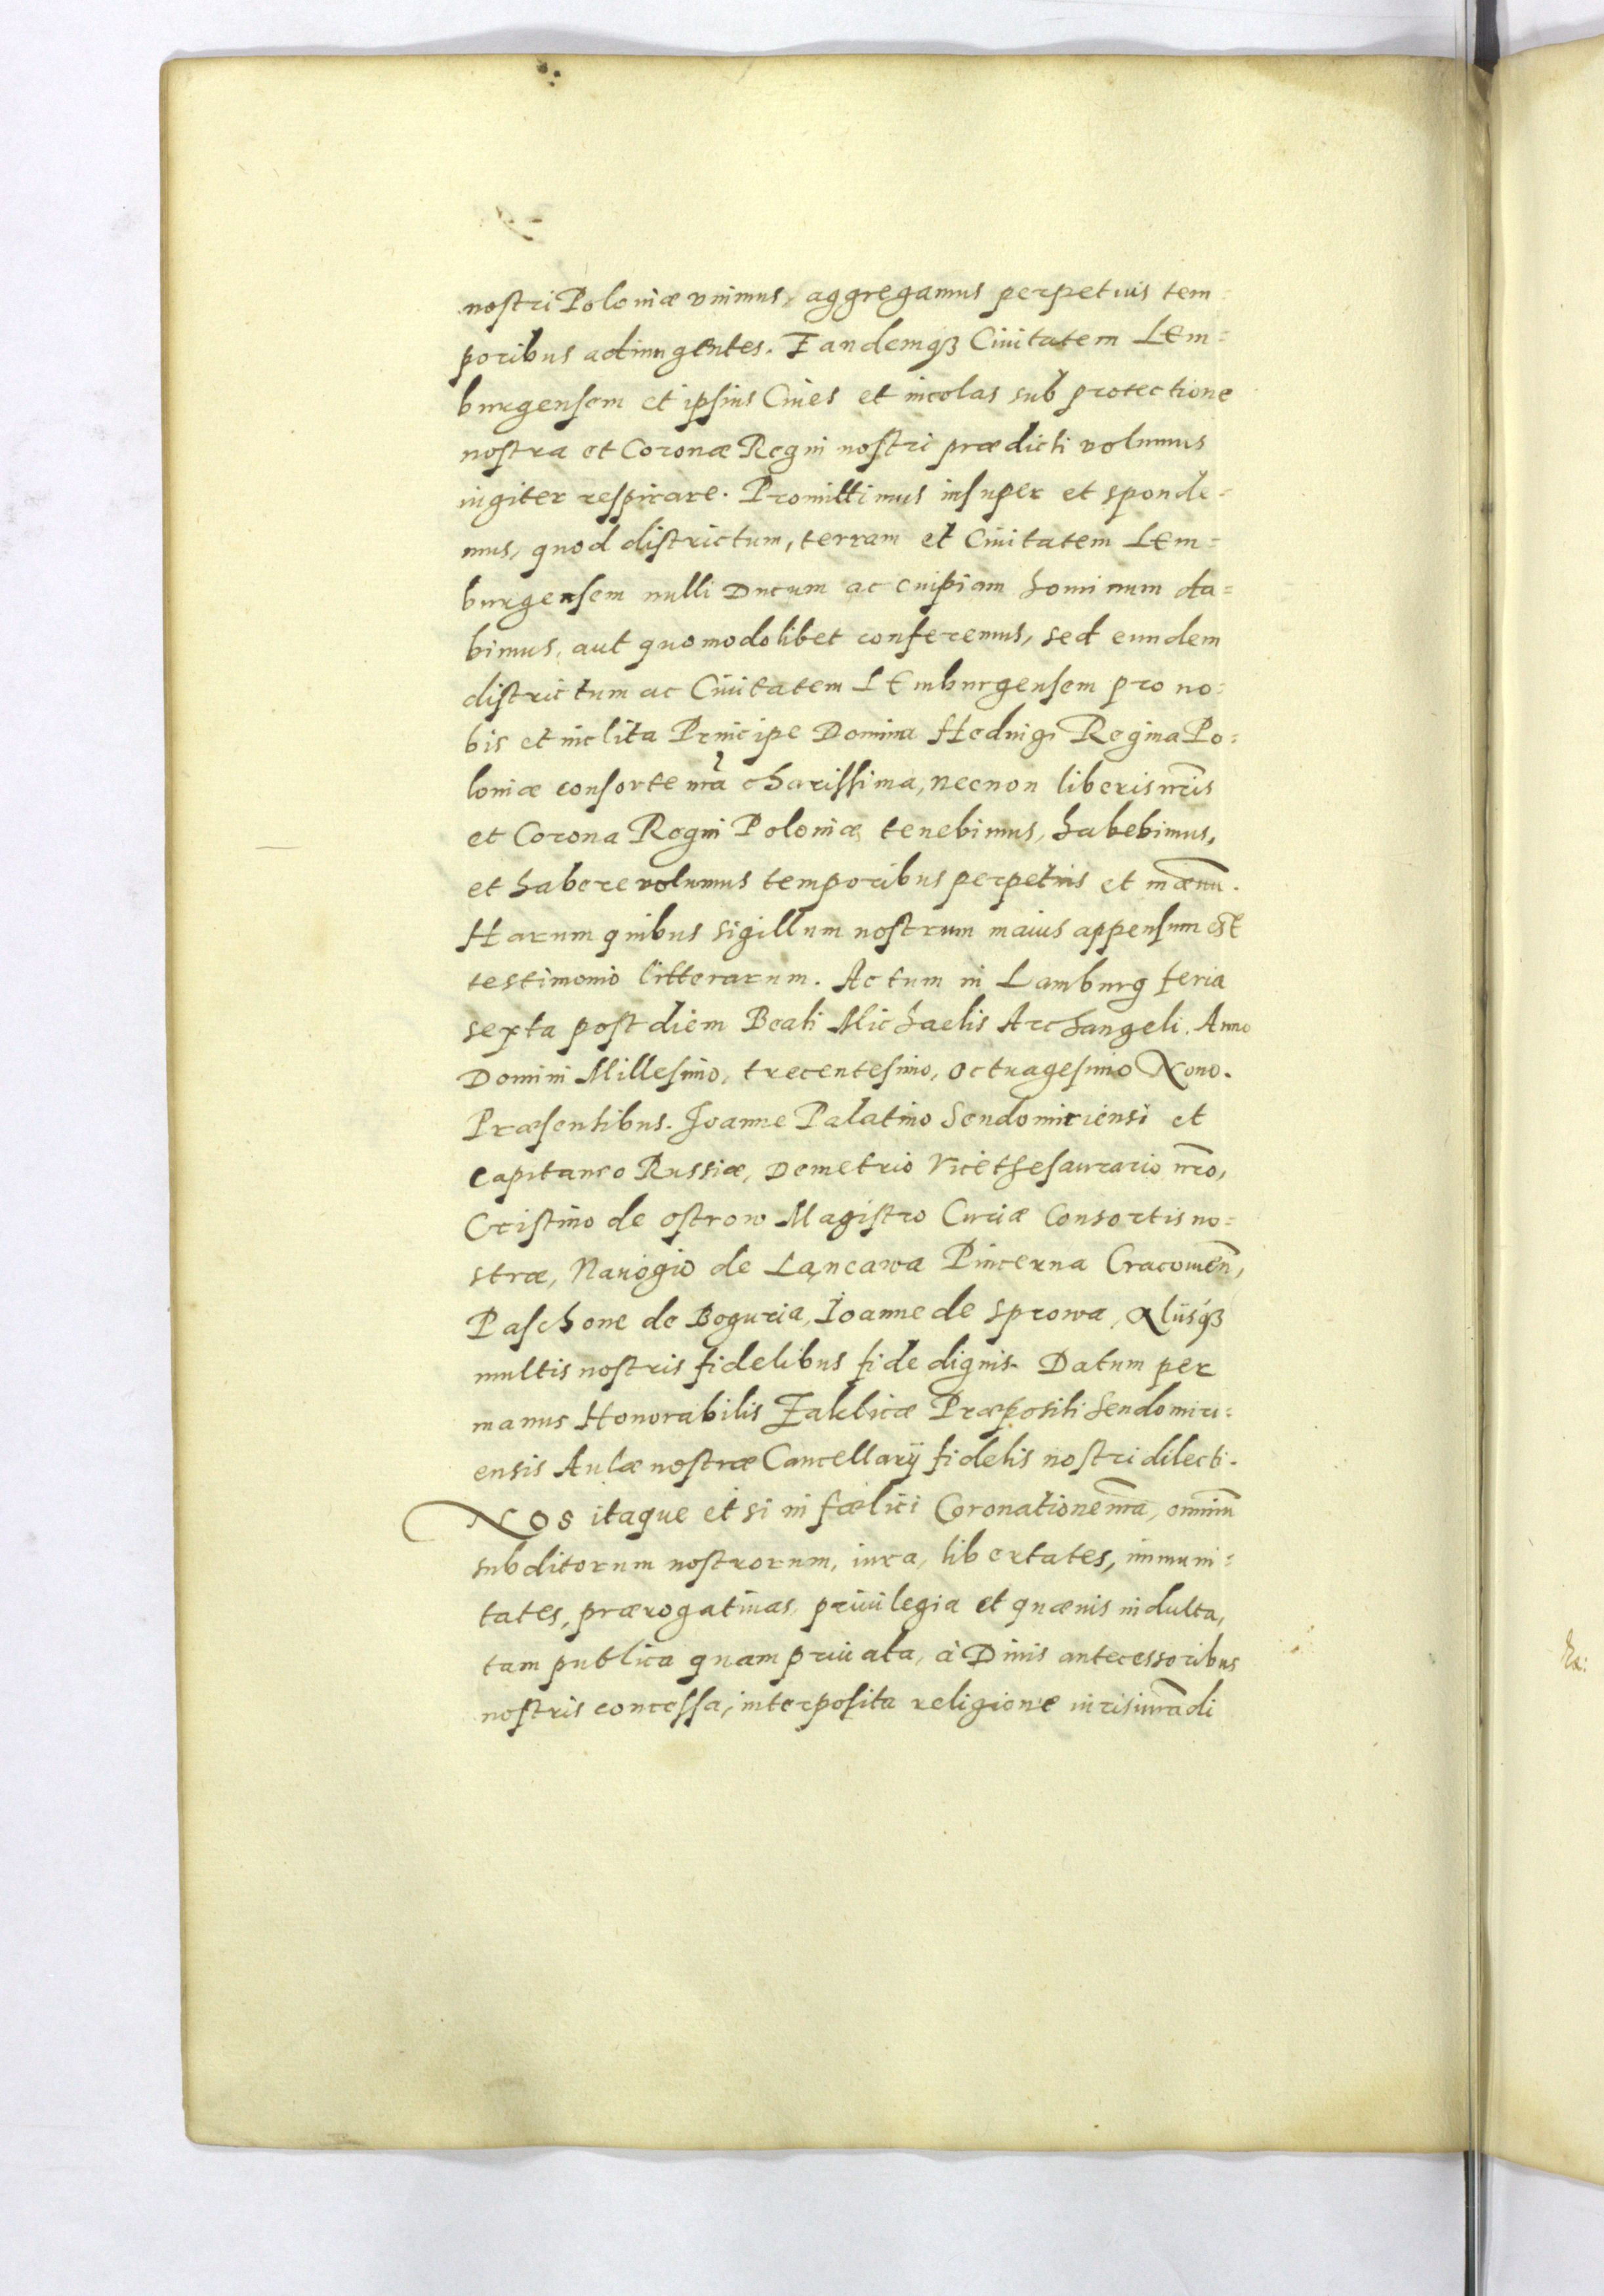 nostri Poloniæ vnimus, aggregamus perpetuis tem=
poribus adiungentes. Eandemqꝫ Ciuitatem LEm=
burgensem et ipsius Ciues et incolas sub protectione
nostra et Coronæ Regni nostri prædicti volumus
iugiter respirare. Promittimus insuper et sponde=
mus, quod districtum, terram et Ciuitatem LEm=
burgensem nulli Ducum ac cuipiam hominum da=
bimus, aut quomodolibet conferemus, sed eundem
districtum ac Ciuitatem LEmburgensem pro no=
bis et inclita Principe Domina Heduigi Regina Po=
loniæ consorte nr̃a charissima, necnon liberis nr̃is
et Corona Regni Poloniæ tenebimus, habebimus,
et habere volumus temporibus perpetuis et in æuũ.
Harum quibus sigillum nostrum maius appensum est
testimonio litterarum. Actum in Lamburg feria
sexta post diem Beati Michaelis Archangeli. Anno
Domini Millesimo, trecentesimo, octuagesimo Nono.
Præsentibus. Joanne Palatino Sendomiriensi et
Capitaneo Russiæ, Demetrio Vicethesaurario nr̃o,
Cristino de ostrow Magistro Curiæ Consortis no=
stræ, Nauogio de Lancawa Pincerna Cracouieñ,
Paschone de Boguria, Ioanne de Sprowa, Alijsqꝫ
multis nostris fidelibus fide dignis. Datum per
manus Honorabilis Zaklicæ Præpositi Sendomiri=
ensis Aulæ nostræ Cancellarij fidelis nostri dilecti.
NOS itaque et si in fœlici Coronatione nr̃a, omniũ
subditorum nostrorum, iura, libertates, immuni=
tates, prærogatiuas, priuilegia et quæuis indulta,
tam publica quam priuata, à Diuis antecessoribus
nostris concessa, interposita religione iurisiurãdi